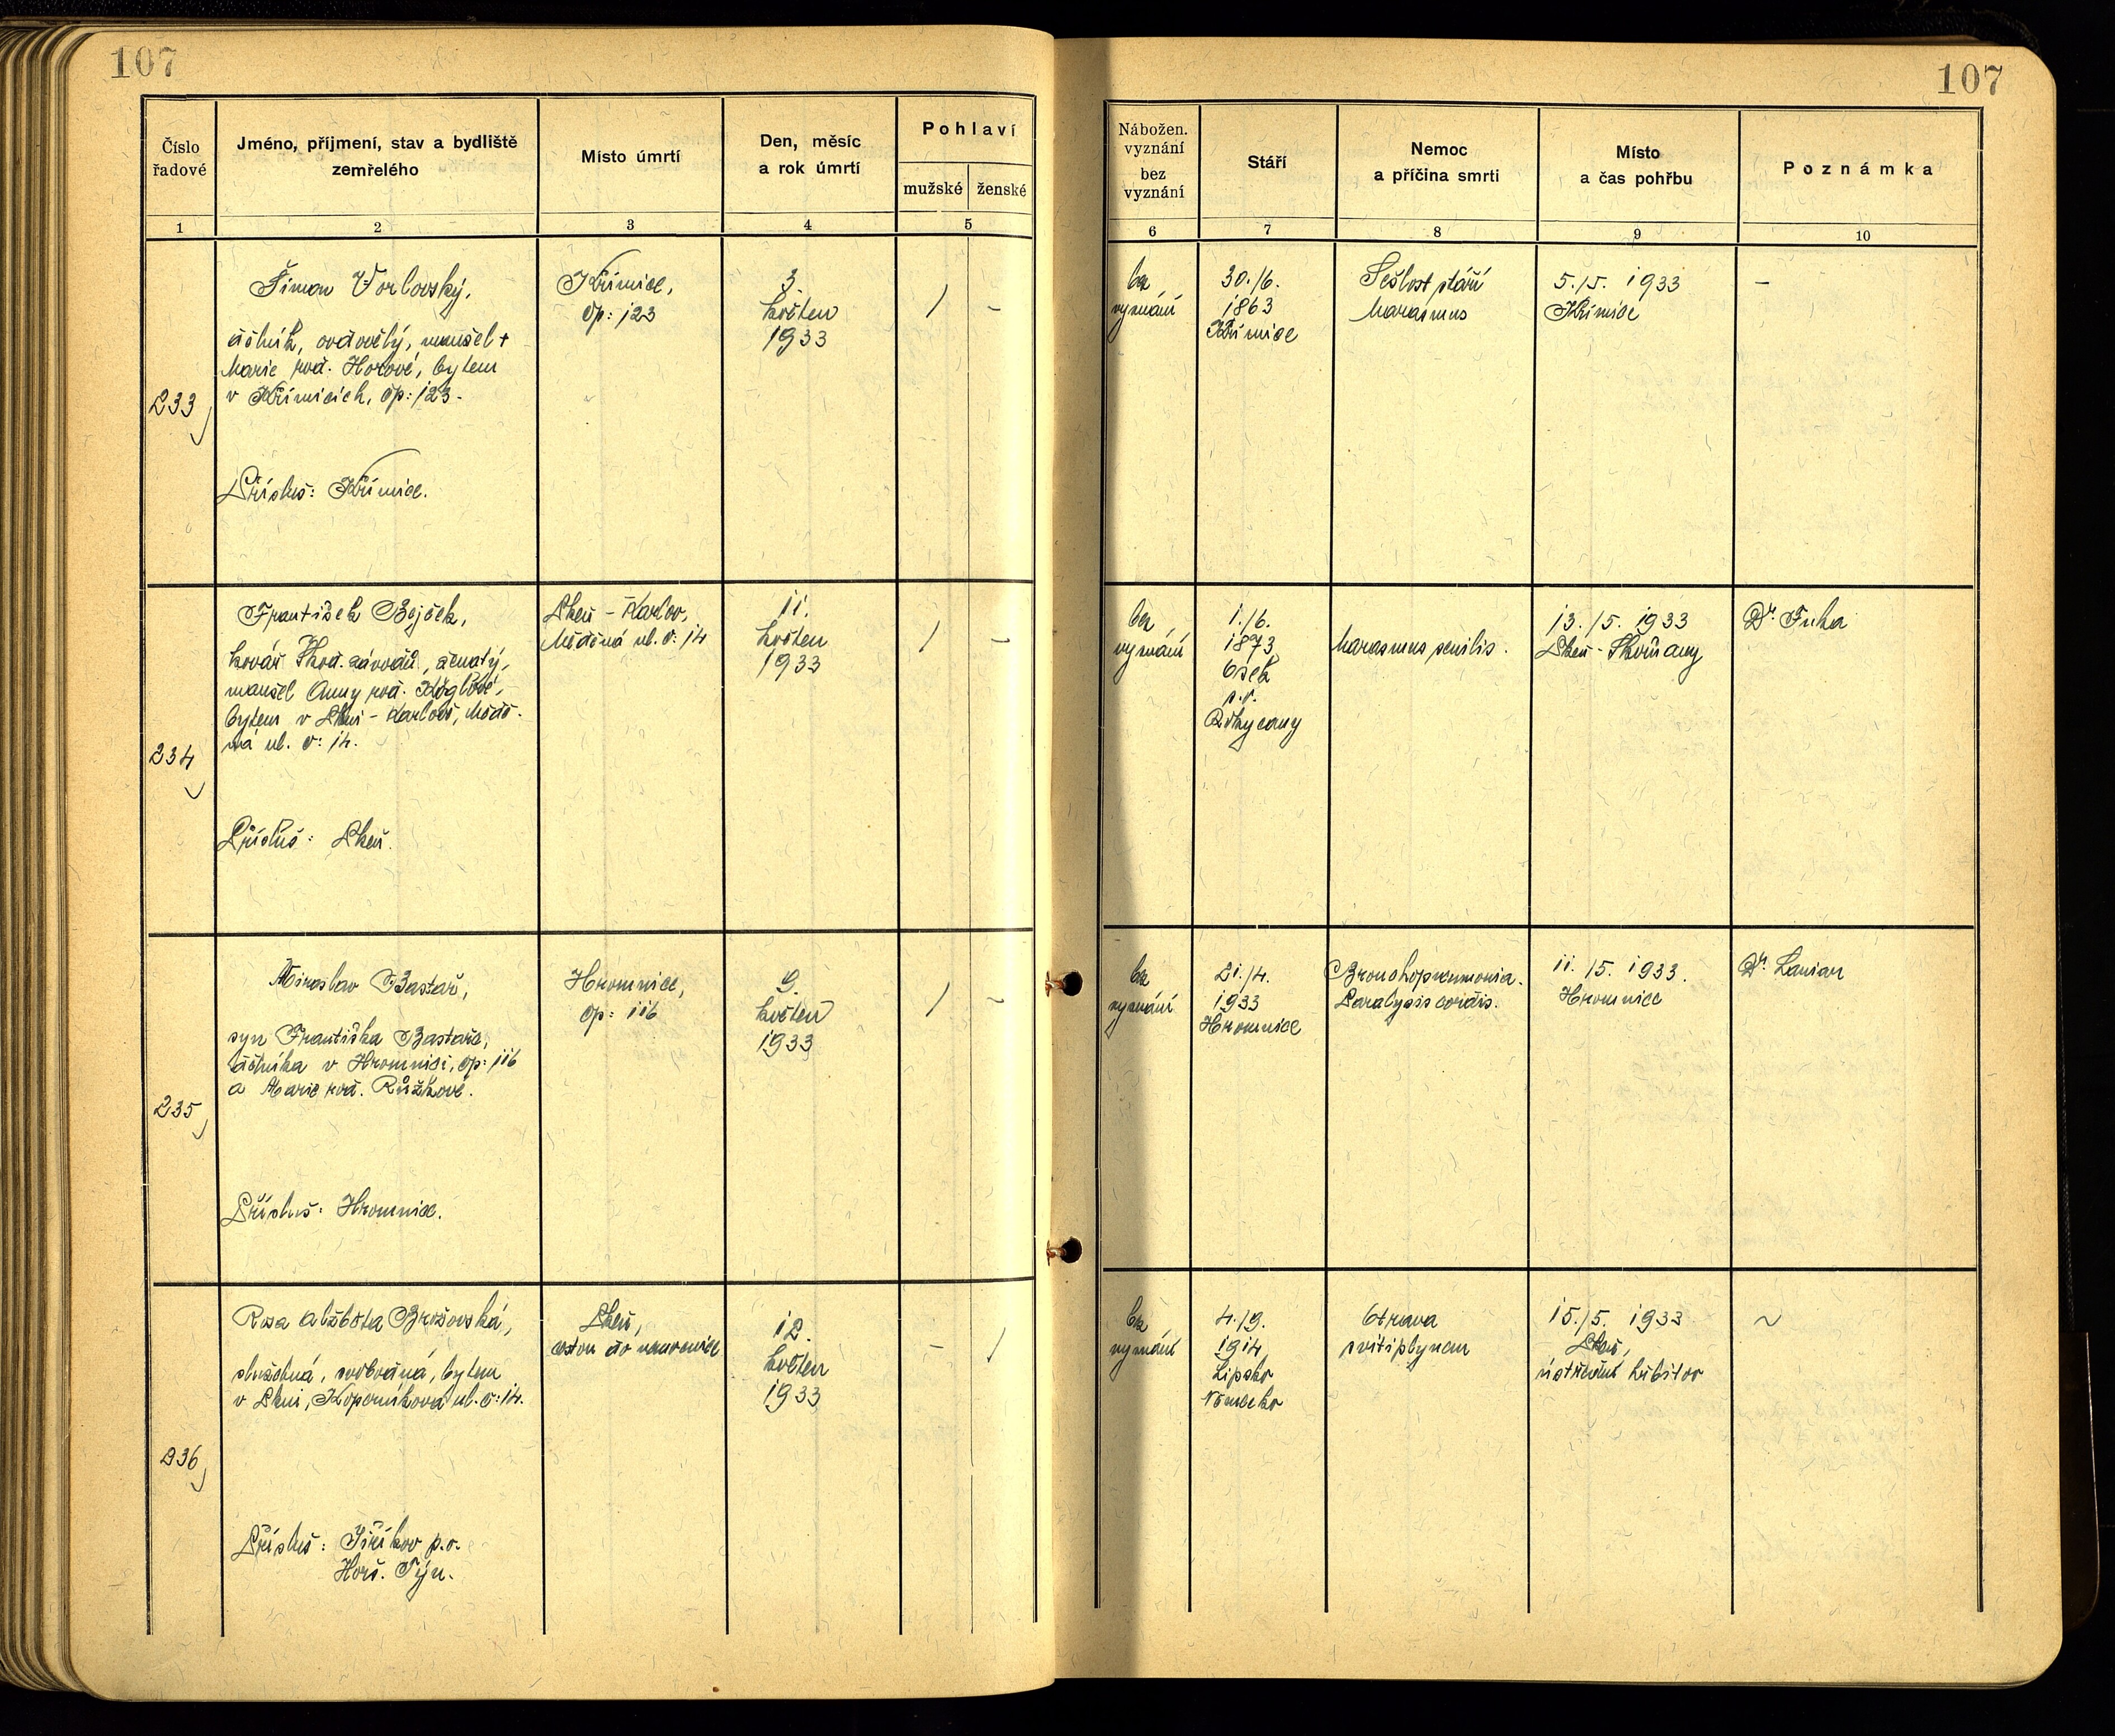 107
107
Číslo
řadové
Jméno, příjmení, stav a bydliště
zemřelého
Místo úmrtí
Den, měsíc
a rok úmrtí
Pohlaví
mužské
ženské
Nábožen.
vyznání
bez
vyznání
Stáří
Nemoc
a příčina smrti
Místo
a čas pohřbu
Poznámka
1
2
3
4
5
6
7
8
9
10
233
Šimon Vorlovský,
dělník, ovdovělý, manžel +
Marie roz. Hotové, bytem
v Křimicích, čp: 123.
Přísluš: Křimice.
Křimice,
čp: 123
3.
květen
1933
/
-
bez
vyznání
30./6.
1863
Křimice
Sešlost stáří
Marasmus
5./5. 1933
Křimice
-
234
František Bejček,
kovář Škod. závodů, ženatý,
manžel Anny roz. Köglové,
bytem v Plzni - Karlově, Mědě-
ná ul. č: 14.
Přísluš: Plzeň.
Plzeň - Karlov,
Měděná ul. č: 14
11.
květen
1933
/
-
bez
vyznání
1./6.
1873
Osek
p.o.
Rokycany
Marasmus senilis.
13./5. 1933
Plzeň - Skvrňany
Dr. Fuka
235
Miroslav Bastař,
syn Františka Bastaře,
dělníka v Hromnici, čp: 116
a Marie roz. Růžkové.
Přísluš: Hromnice.
Hromnice,
čp: 116
9.
květen
1933
/
-
bez
vyznání
21./4.
1933
Hromnice
Bronchopneumonia.
Paralysis cordis.
11./5. 1933.
Hromnice
Dr. Lanian
236
Rosa Alžběta Brožovská,
služebná, svobodná, bytem
v Plzni, Koperníkova ul. č: 14.
Přísluš: Jiříkov p.o.
Horš. Týn.
Plzeň,
cestou do nemocnice
12.
květen
1933
-
/
bez
vyznání
4./9.
1914
Lipsko
Německo
Otrava
svítiplynem
15./5. 1933
Plzeň,
ústřední hřbitov
~